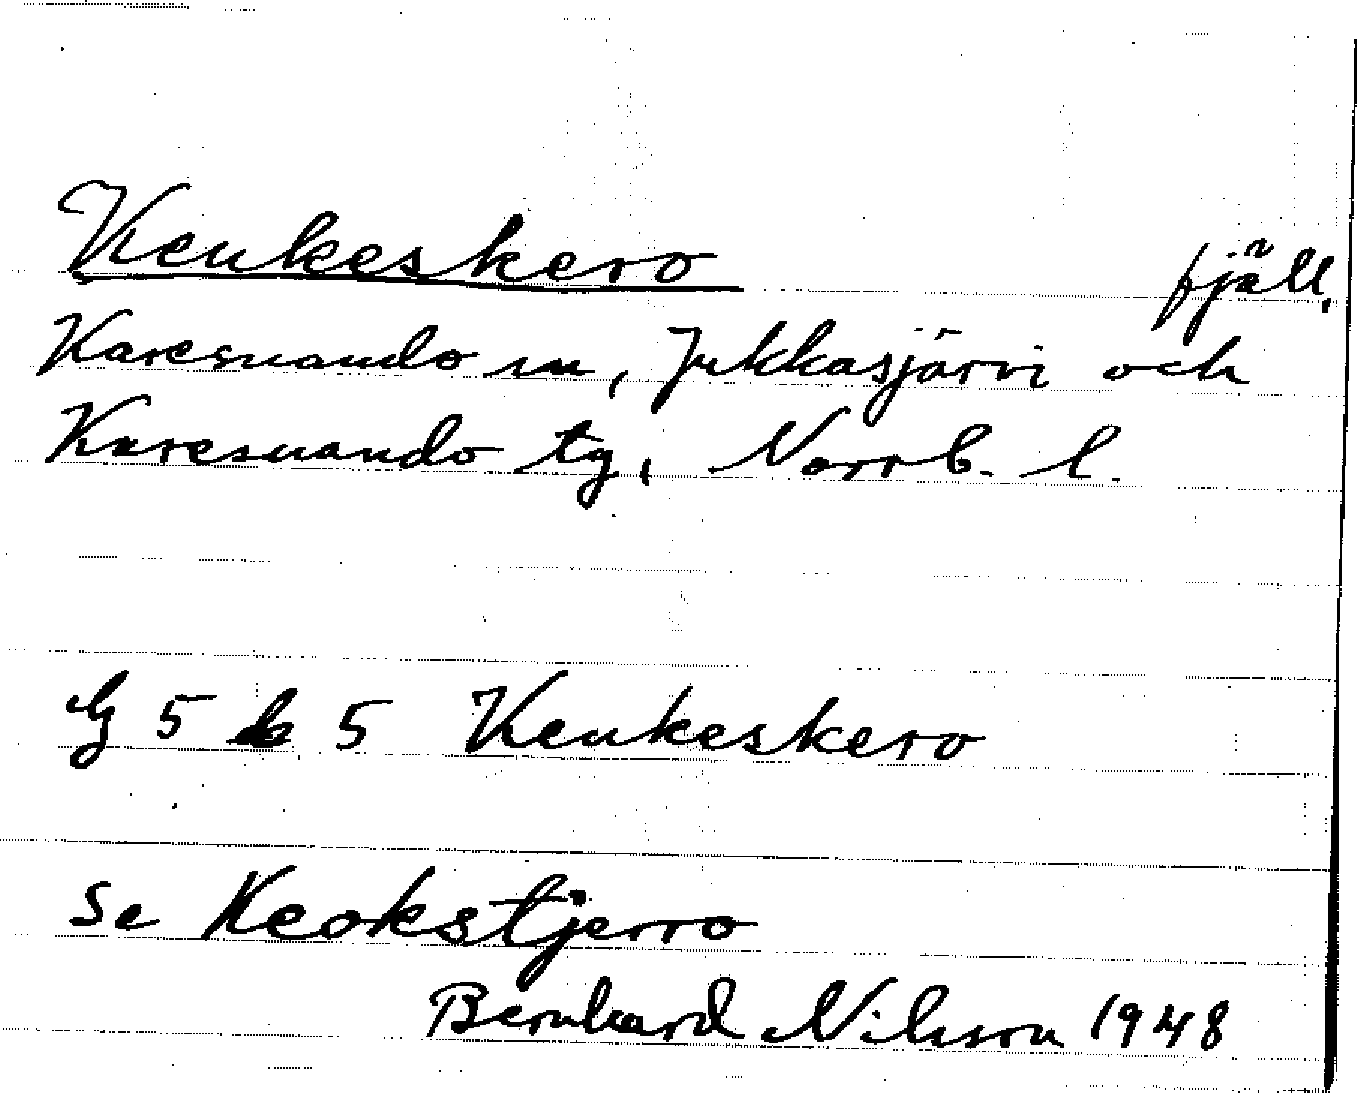 Keukeskero fjäll.
Karesuando sn, Jukkasjärvi och
Karesuando tg, Norrb. l.
G 5 b 5 Keukeskero
se Keokstjerro
Bernhard Nilsson 1948